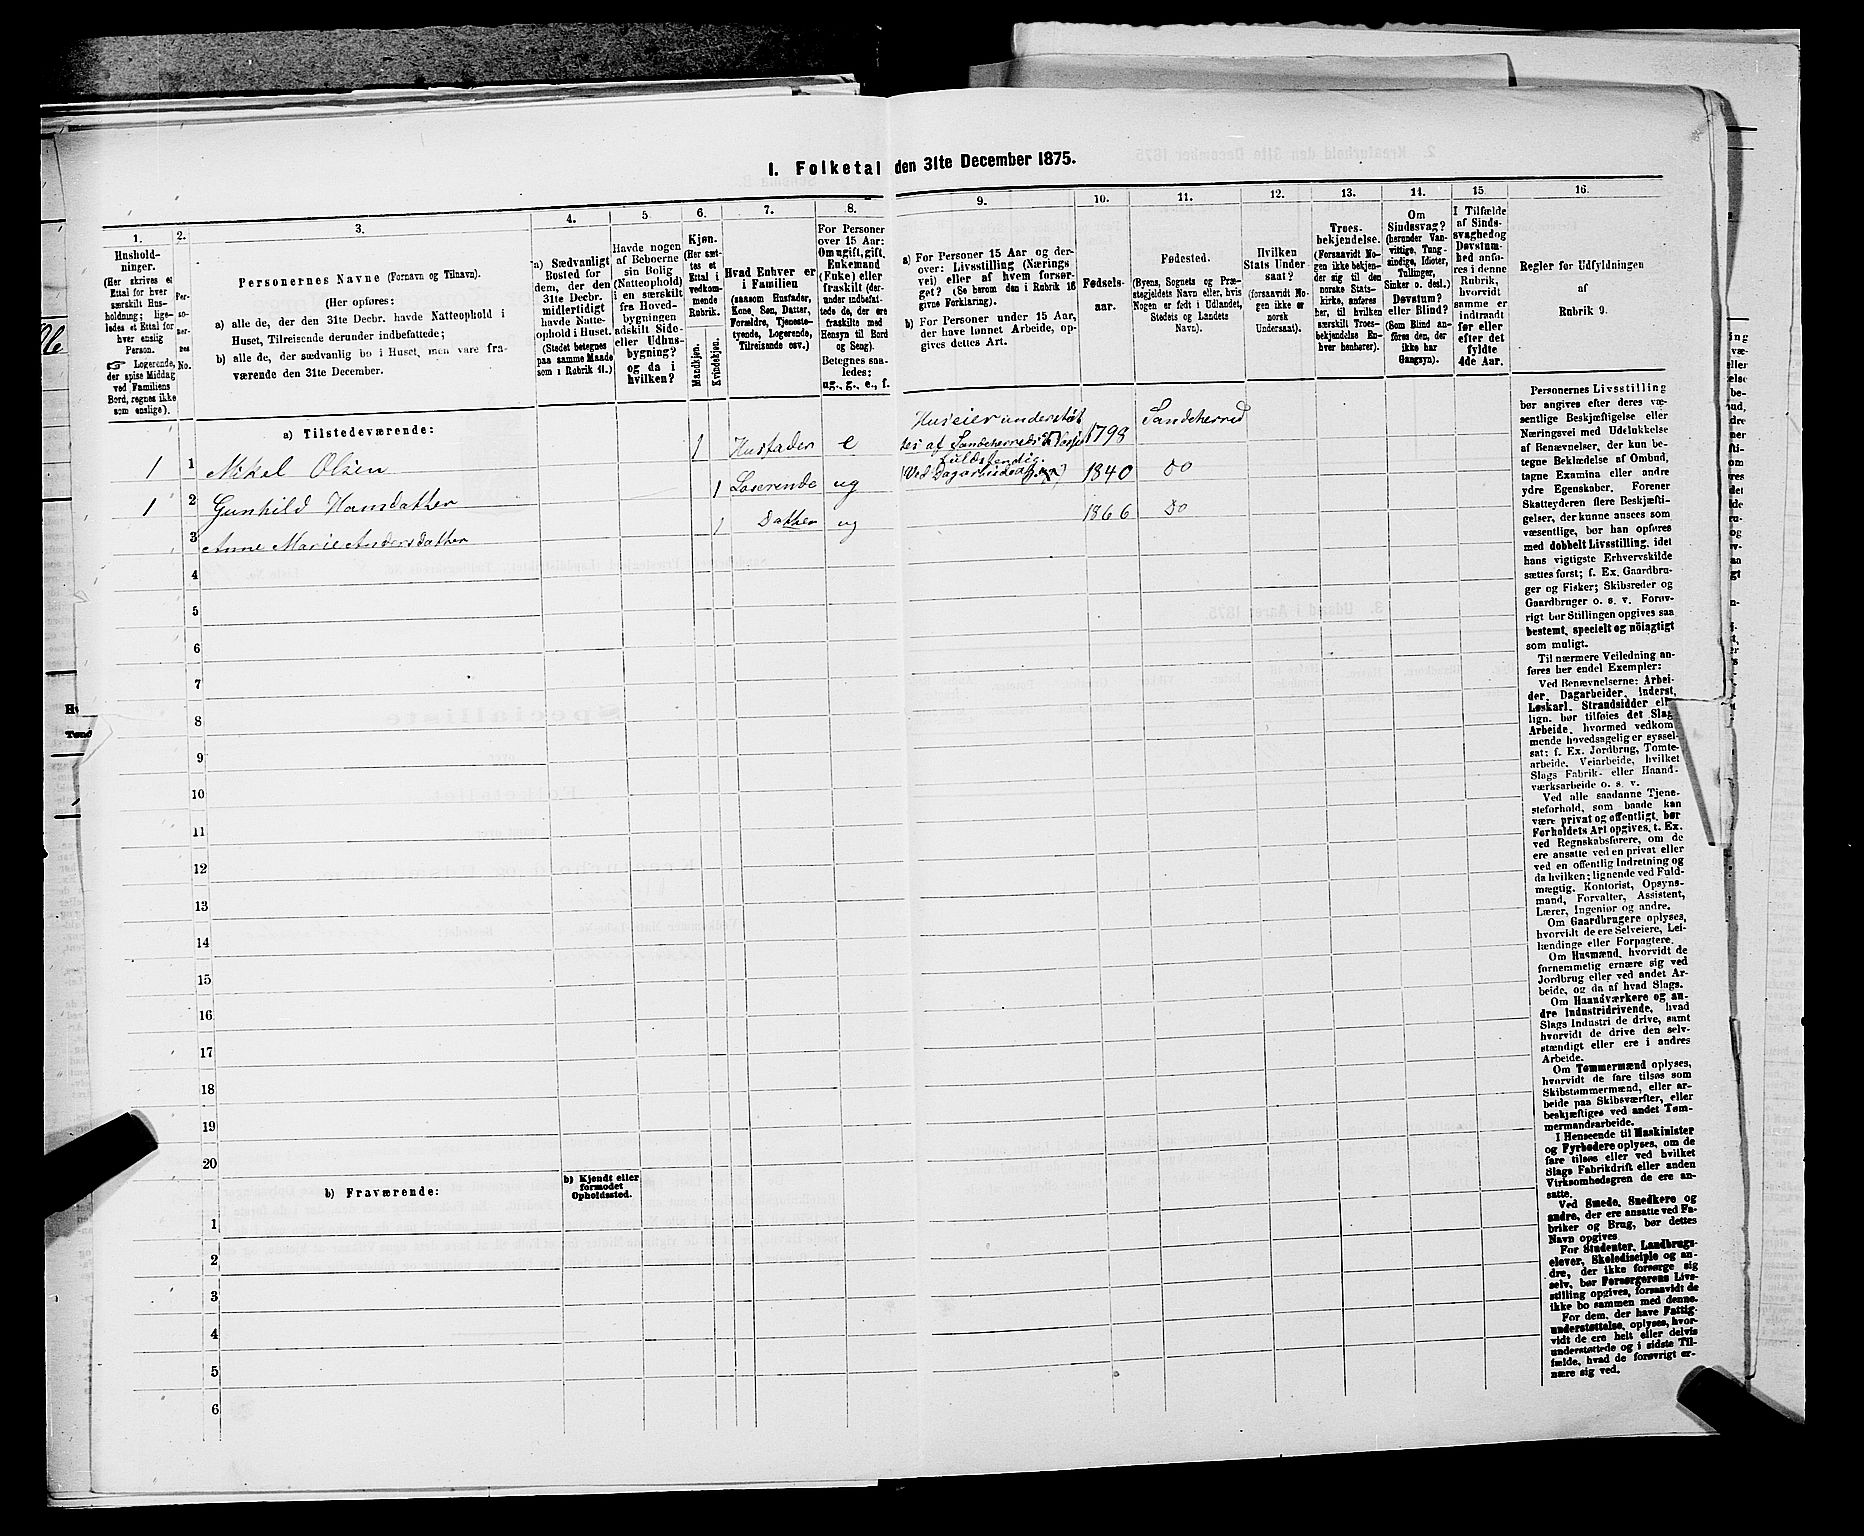 1. Folketal den 31te December 1875.
1.
2.
3.
4.
5.
6.
7.
8.
9.
10.
11.
12.
13.
14.
15
16.
Hushold-
ninger.
(Her skrives et
Ettal for hver
særskilt Hus-
holdning; lige-
ledes et Ettal for
hver enslig
Person.
☞ Logerende,
der spise Middag
ved Familiens
Bord, regnes ikke
som enslige).
Per-
so-
ner-
nes
No.
Personernes Navne (Fornavn og Tilnavn).
(Her opføres:
a) alle de, der den 31te Decbr. havde Natteophold i
Huset, Tilreisende derunder indbefattede;
b) alle de, der sædvanlig bo i Huset, men vare fra-
værende den 31te December.
a) Sædvanligt
Bosted for
dem, der den
31te Decbr.
midlertidigt
havde Natte-
ophold i Huset.
(Stedet betegnes
paa samme Maade
som i Rubrik 11.)
Havde nogen
af Beboerne
sin Bolig
(Natteophold)
i en særskilt
fra Hoved-
bygningen
adskilt Side-
eller Udhus-
bygning?
og da i
hvilken?
Kjøn.
(Her sæt-
tes et
Ettal i
vedkom-
mende
Rubrik.
Mandkjøn.
Kvindekjøn.
Hvad Enhver er
i Familien
(saasom Husfader,
Kone, Søn, Datter,
Forældre, Tjeneste-
tyende, Logerende,
Tilreisende osv.)
For Personer
over 15 Aar:
Om ugift, gift,
Enkemand
(Enke) eller
fraskilt (der-
under indbefat-
tede de, der ere
fraskilte med
Hensyn til Bord
og Seng).
Betegnes saa-
ledes:
ug., g., e., f.
a) For Personer 15 Aar og der-
over: Livsstilling (Nærings
vei) eller af hvem forsør-
get? (Se herom den i Rubrik 16
givne Forklaring).
b) For Personer under 15 Aar,
der have lønnet Arbeide, op-
gives dettes Art.
Fødsels-
aar.
Fødested.
(Byens, Sognets og Præ-
stegjeldets Navn eller, hvis
Nogen er født i Udlandet,
Stedets og Landets
Navn).
Hvilken
Stats Under
saat?
(forsaavidt No-
gen ikke er
norsk
Undersaat).
Troes-
bekjendelse.
(Forsaavidt No-
gen ikke bekjen-
der sig til den
norske Stats-
kirke, anføres
her, til hvilken
særskilt Troes-
bekjendelse En-
hver henhører).
Om
Sindssvag?
(herunder Van-
vittige, Tung-
sindige, Idioter,
Tullinger,
Sinker o. desl.)
Døvstum?
eller Blind?
(Som Blind an-
føres den, der
ikke har
Gangsyn).
I Tilfælde
af Sinds-
svaghed og
Døvstum-
hed anfø-
res i denne
Rubrik,
hvorvidt
samme er
indtraadt
før eller
efter det
fyldte
4de Aar.
Regler før Udfyldningen
af
Rubrik 9.
a) Tilstedeværende:
1 1 Nikel Olsen 1 Husfader e Huseier understøt
tes af Sandeherreds 1798 Sandeherred
fuldstendig.
1 2 Gunhild Hansdatter 1 Loserende ug 1840 Do
3 Anne Marie Andersdatter 1 Datter ug 1866 Do
4
5
6
7
8
9
10
11
12
13
14
15
16
17
18
19
20
b) Fraværende:
b) Kjendt eller
formodet
Opholdssted.
1
2
3
4
5
6
Personernes Livsstilling
bør angives efter deres væ-
sentlige Beskjæftigelse eller
Næringsvei med Udelukkelse
af Benævnelser, der kun be-
tegne Beklædelse af Ombud,
tagne Examina eller andre
ydre Egenskaber. Forener
Skatteyderen flere Beskjæfti-
gelser, der kunne ansees som
væsentlige, bør han opføres
med dobbelt Livsstilling, idet
hans vigtigste Erhvervskilde
sættes først; f. Ex. Gaardbru-
ger og Fisker; Skibsreder og
Gaardbruger o. s. v. Forøv-
rigt bør Stillingen opgives saa
bestemt, specielt og nöiagtigt
som muligt.
Til nærmere Veiledning an-
føres her endel Exempler:
Ved Benævnelserne: Arbei-
der, Dagarbeider, Inderst,
Løskarl, Strandsidder ell.
lign. bør tilføies det Slag
Arbeide, hvormed vedkom
mende hovedsagelig er syssel-
sat; f. Ex. Jordbrug, Tomte-
arbeide, Veiarbeide, hvilket
Slags Fabrik- eller Haand-
værksarbeide o. s. v.
Ved alle saadanne Tjene-
steforhold, som baade kan
være privat og offentligt, bør
Forholdets Art opgives, t. Ex.
ved Regnskabsførere, om de
ere ansatte ved en privat eller
ved en offentlig Indretning og
da hvilken; lignende ved Fuld-
mægtig, Kontorist, Opsyns-
mand, Forvalter, Assistent,
Lærer, Ingeniør og andre.
Om Gaardbrugere oplyses,
hvorvidt de ere Selveiere, Lei-
lændinge eller Forpagtere.
Om Husmænd, hvorvidt de
fornemmelig ernære sig ved
Jordbrug eller ved andet Ar-
beide, og da af hvad Slags.
Om Haandværkere og an-
dre Industridrivende, hvad
Slags Industri de drive, samt
hvorvidt de drive den selv-
stændigt eller ere i andres
Arbeide.
Om Tømmermænd oplyses,
hvorvidt de fare tilsøs som
Skibstømmermænd, eller ar-
beide paa Skibsværfter, eller
beskjæftiges ved andet Tøm-
mermandsarbeide.
I Henseende til Maskinister
og Fyrbødere oplyses, om de
fare tilsøs eller ved hvilket
Slags Fabrikdrift eller anden
Virksomhedsgren de ere an-
satte.
Ved Smede, Snedkere og
andre, der ere ansatte ved Fa-
briker og Brug, bør dettes
Navn opgives
For Studenter, Landbrugs-
elever, Skoledisciple og an-
dre, der ikke forsørge sig
selv, bør Forsørgerens Livs-
stilling opgives, forsaavidt de
ikke bo sammen med denne.
For dem, der have Fattig-
understøttelse, oplyses, hvor-
vidt de ere helt eller delvis
understøttede og i sidste Til-
fælde, hvad de forøvrigt er-
nære sig ved.